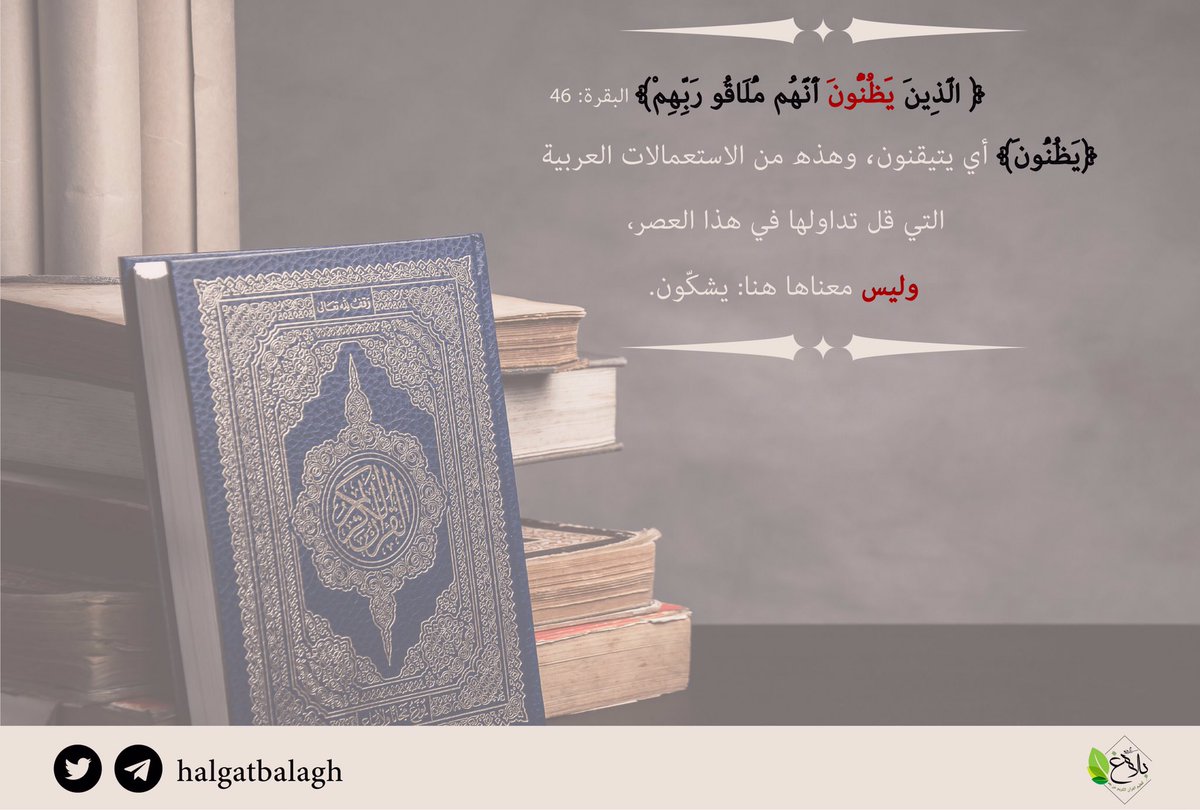 ﴿ الَّذِينَ يَظُنُّونَ أَنَّهُم مُّلَاقُو رَبِّهِمْ﴾ البقرة: 46
﴿يَظُنُّونَ﴾ أي يتيقنون، وهذه من الاستعمالات العربية
التي قل تداولها في هذا العصر،
وليس معناها هنا: يشكّون.
وقف لله تعالى
القرآن الكريم
halgatbalagh
بلاغ